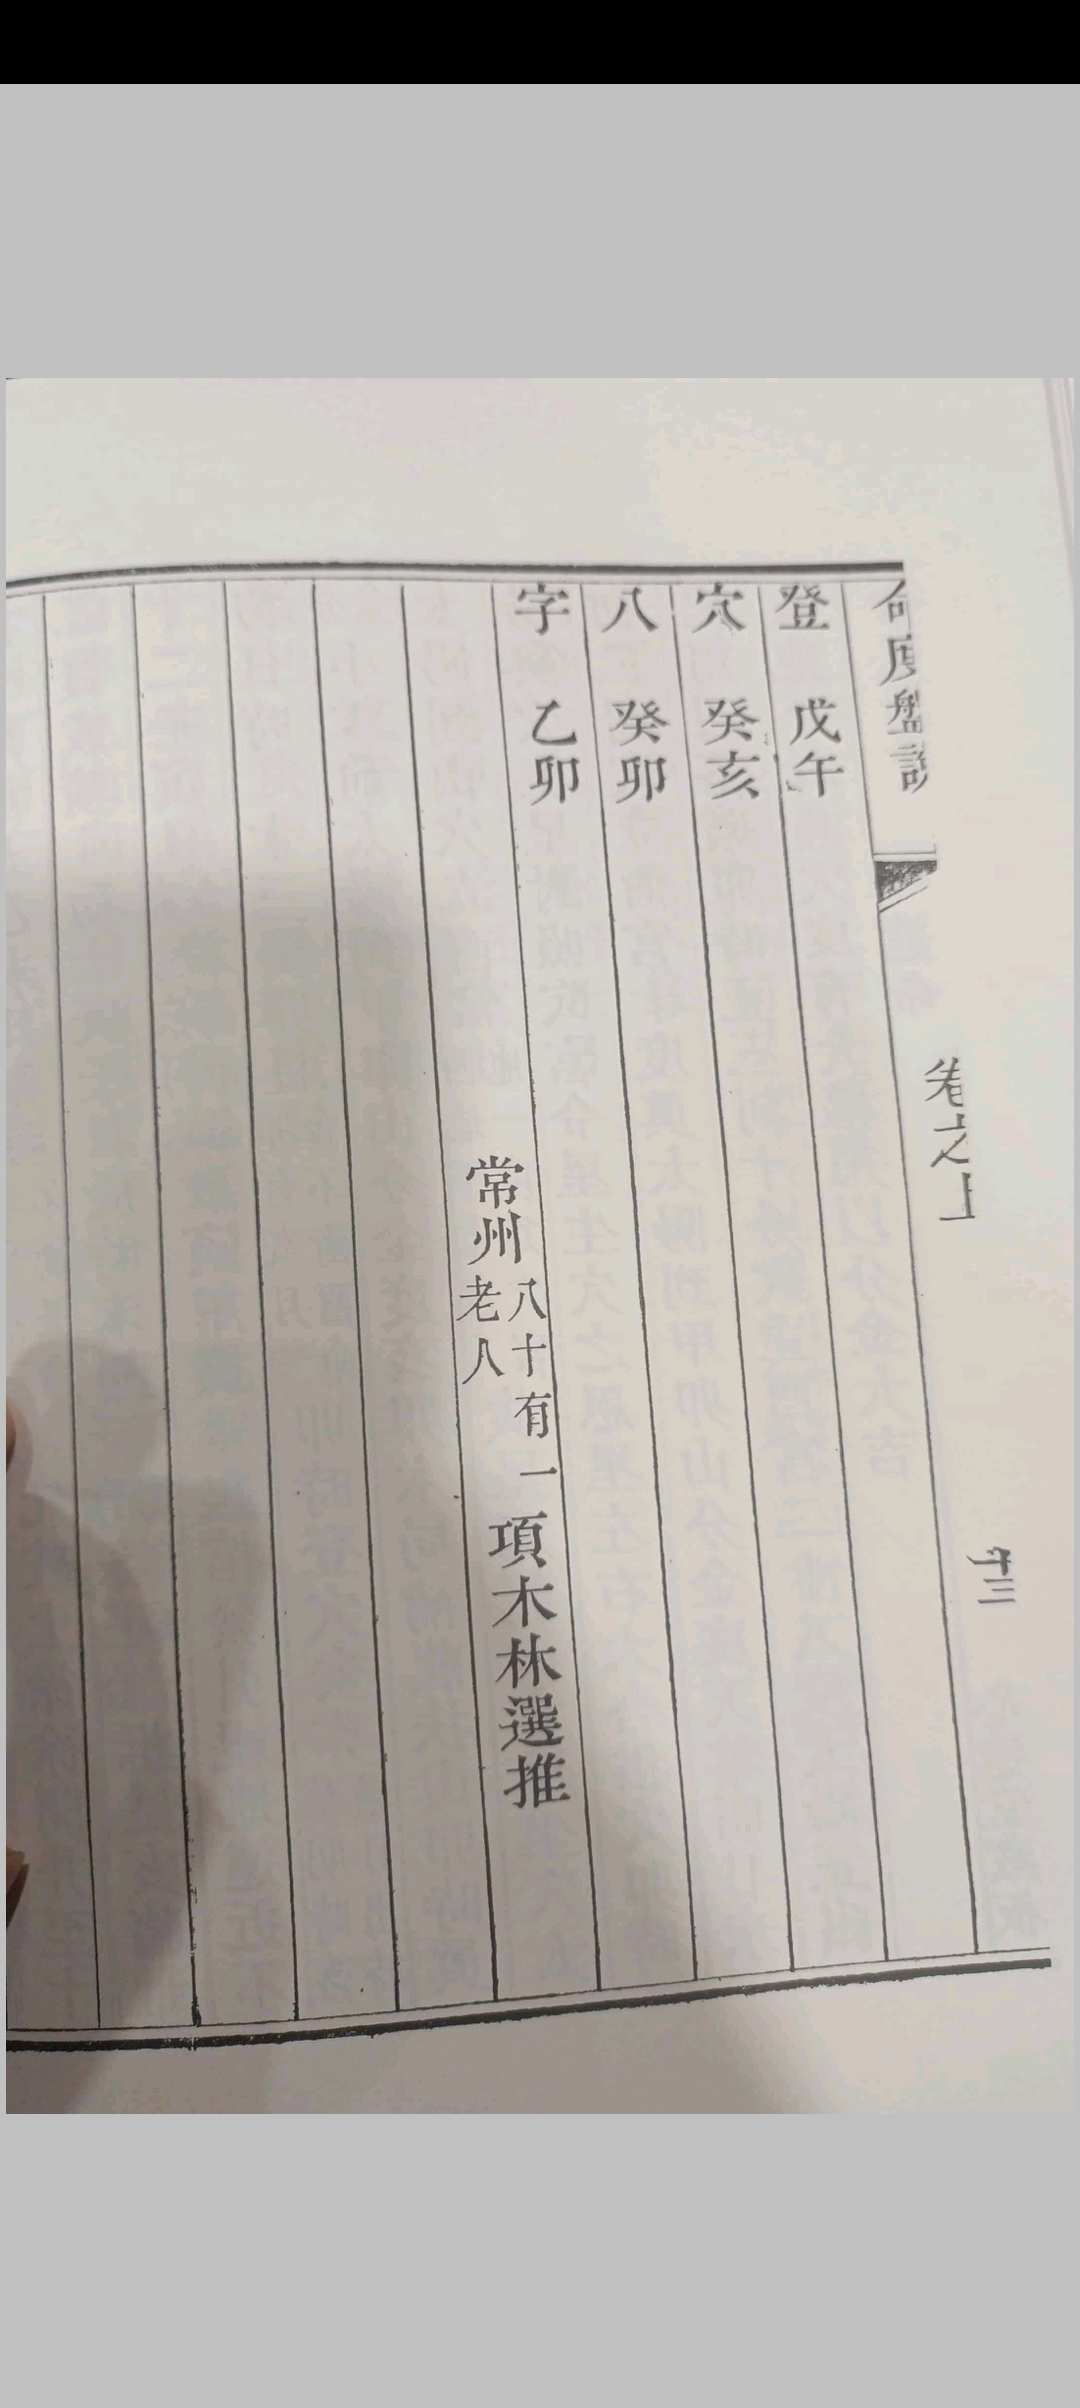 命度盤說
卷之上
登　戊午
穴　癸亥
八　癸卯
字　乙卯
常州八十有一老人項木林選推